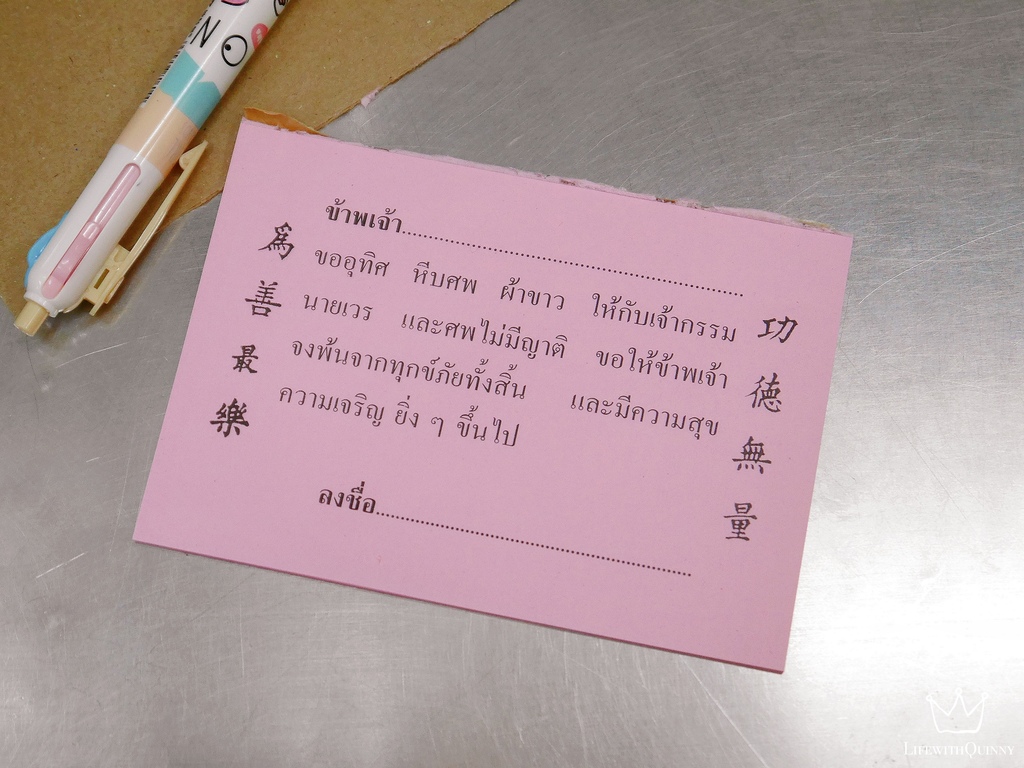 ข้าพเจ้า..............................................................
ขออุทิศ หีบศพ ผ้าขาว ให้กับเจ้ากรรม
นายเวร และศพไม่มีญาติ ขอให้ข้าพเจ้า
จงพ้นจากทุกข์ภัยทั้งสิ้น และมีความสุข
ความเจริญ ยิ่ง ๆ ขึ้นไป
ลงชื่อ..............................................................
功德無量
為善最樂
LIFEWITHQUINNY